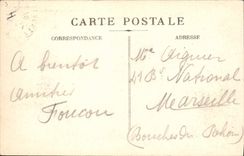 CARTE POSTALE
CORRESPONDANCE
ADRESSE
A bientôt
Amitiés
Foucou
Me Aiguier
41 Bd National
Marseille
(Bouches du Rhône)